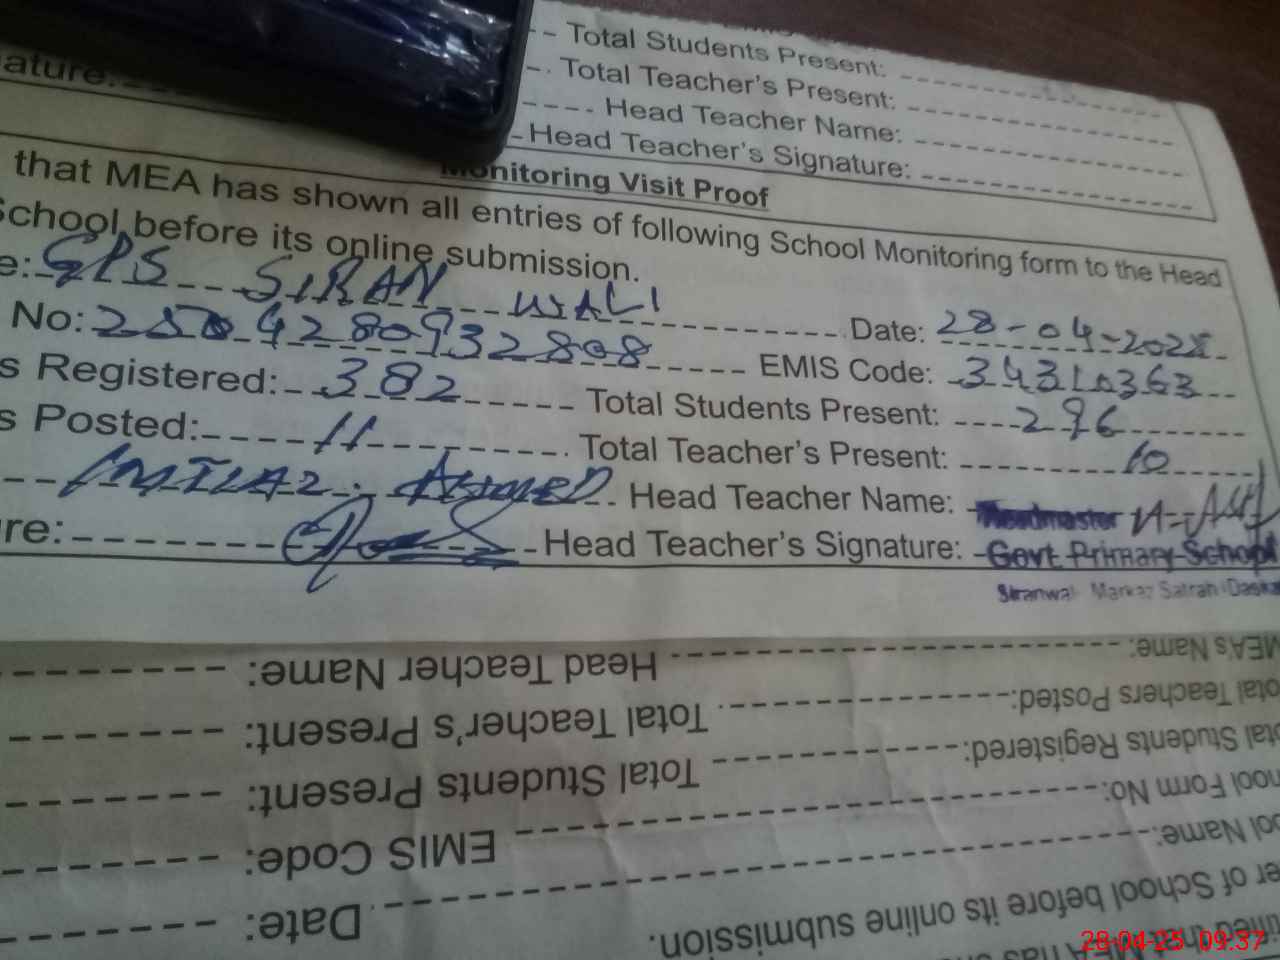 Total Students Present:
ature: Total Teacher's Present:
Head Teacher Name:
Head Teacher's Signature:
Monitoring Visit Proof
that MEA has shown all entries of following School Monitoring form to the Head
School before its online submission.
e: GPS SIRAN WALI Date: 28-04-2025
No: 2504280932808 EMIS Code: 34310363
s Registered: 382 Total Students Present: 296
s Posted: 11 Total Teacher's Present: 10
IMTIAZ AHMED Head Teacher Name: Headmaster
re: Head Teacher's Signature: Govt Primary School
Siranwali Markaz Satrah Daska
MEA's Name: Head Teacher Name:
otal Teachers Posted: Total Teacher's Present:
otal Students Registered: Total Students Present:
hool Form No: EMIS Code:
ool Name: Date:
er of School before its online submission.
28-04-25 09:37